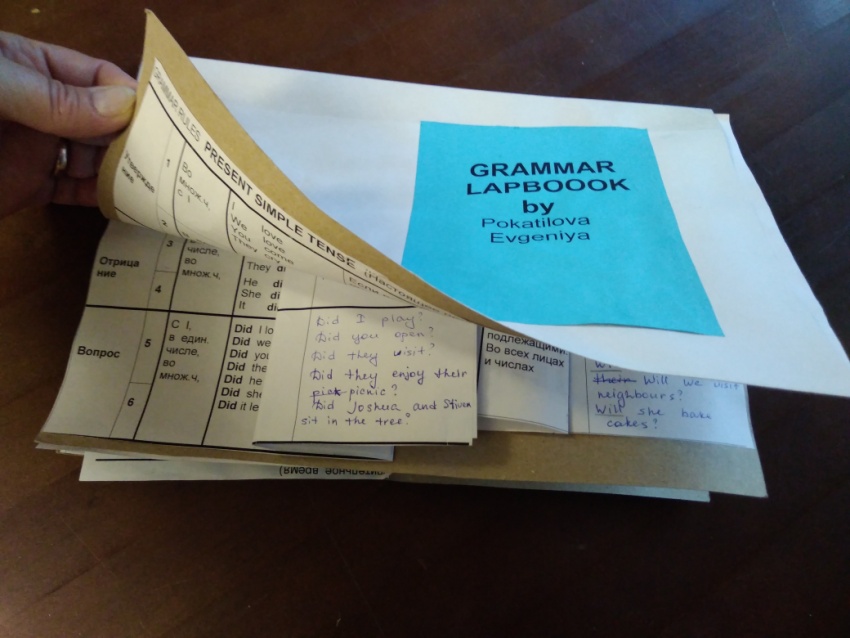 GRAMMAR
LAPBOOOK
by
Pokatilova
Evgeniya
GRAMMAR RULES PRESENT SIMPLE TENSE
1
Во
множ.ч.
с I
I love
We love
You come
They cry
3
числе,
во
множ.ч.
Отрица
ние
4
They
He
She
It
Вопрос
5
6
С I,
в един.
числе,
во
множ.ч.
Did I lo
Did we
Did you
Did the
Did he
Did she
Did it le
Did I play?
Did you open?
Did they visit?
Did they enjoy their
pick picnic?
Did Joshua and Stiven
sit in the tree?
подлежащими
Во всех лицах
и числах
Will we visit
neighbours?
Will she bake
cakes?